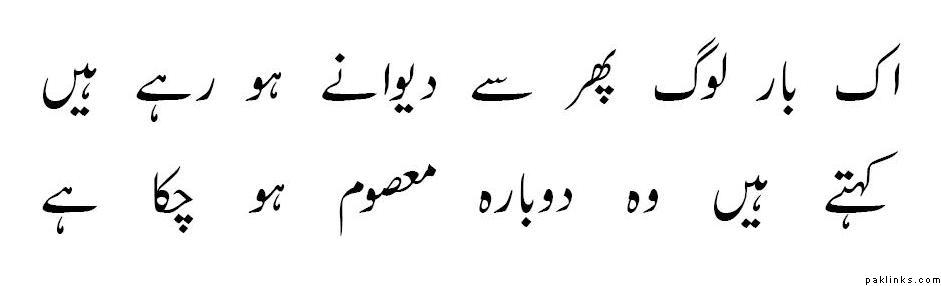 اک بار لوگ پھر سے دیوانے ہو رہے ہیں
کہتے ہیں وہ دوبارہ معصوم ہو چکا ہے
paklinks.com